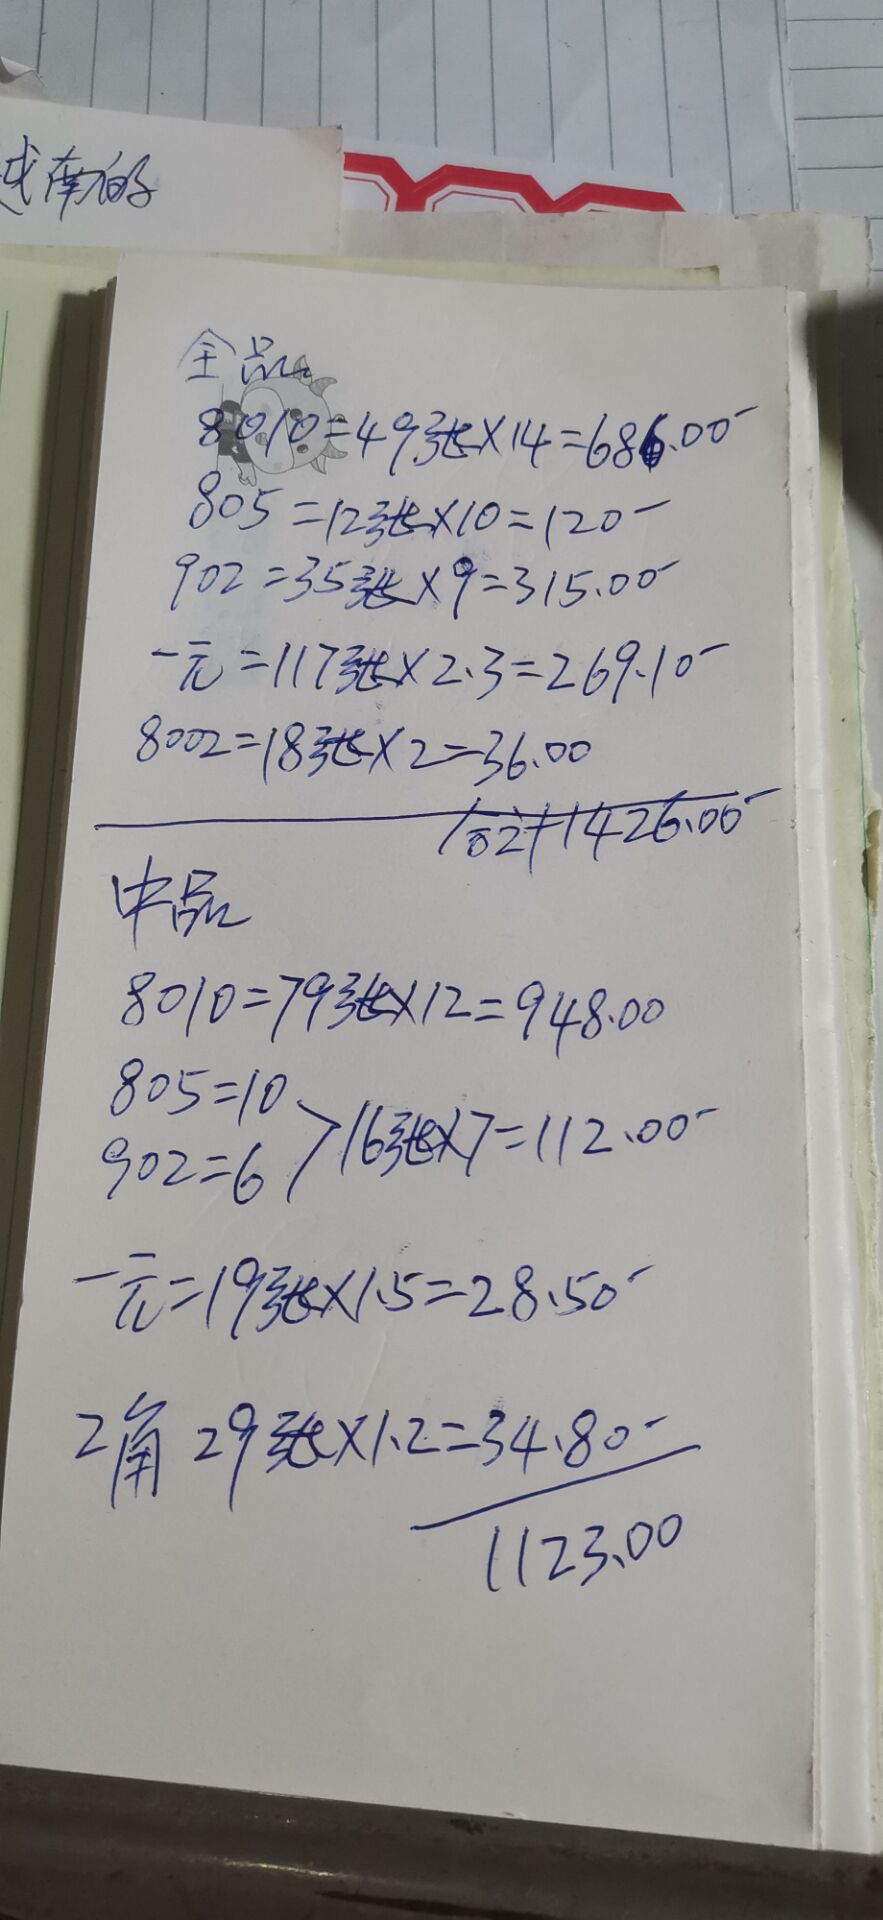 越南的
全品
8010=49张×14=686.00
805=12张×10=120
902=35张×9=315.00
一元=117张×2.3=269.10
8002=18张×2=36.00
合计1426.00
中品
8010=79张×12=948.00
805=10
902=6 >16张×7=112.00
一元=19张×1.5=28.50
2角 29张×1.2=34.80
1123.00